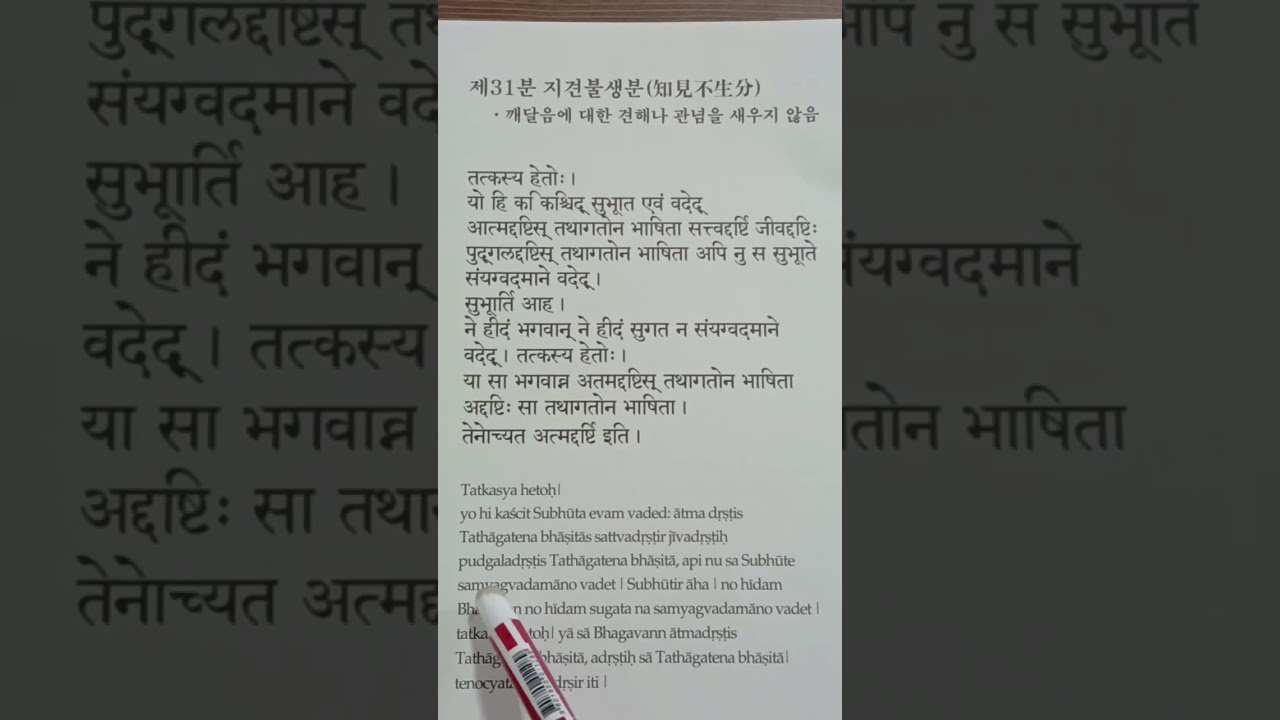 제31분 지견불생분(知見不生分)
· 깨달음에 대한 견해나 관념을 새우지 않음
तत्कस्य हेतोः ।
यो हि क िकश्चिद् सुभूात एवं वदेद्
आत्मद्दष्टिस् तथागतोन भाषिता सत्त्वद्दर्ष्टि जीवद्दष्टिः
पुद्गलद्दष्टिस् तथागतोन भाषिता अपि नु स सुभूाते
संयग्वदमाने वदेद् ।
सुभूार्ति आह ।
ने हीदं भगवान् ने हीदं सुगत न संयग्वदमाने
वदेद् । तत्कस्य हेतोः ।
या सा भगवान्न अतमद्दष्टिस् तथागतोन भाषिता
अद्दष्टिः सा तथागतोन भाषिता ।
तेनोच्यत अत्मद्दर्ष्टि इति ।
Tatkasya hetoḥ|
yo hi kaścit Subhūta evam vaded: ātma dṛṣṭis
Tathāgatena bhāṣitās sattvadṛṣṭir jīvadṛṣṭiḥ
pudgaladṛṣṭis Tathāgatena bhāṣitā, api nu sa Subhūte
samyagvadamāno vadet | Subhūtir āha | no hīdam
no hīdam sugata na samyagvadamāno vadet |
yā sā Bhagavann ātmadṛṣṭis
bhāṣitā, adṛṣṭiḥ sā Tathāgatena bhāṣitā|
iti |